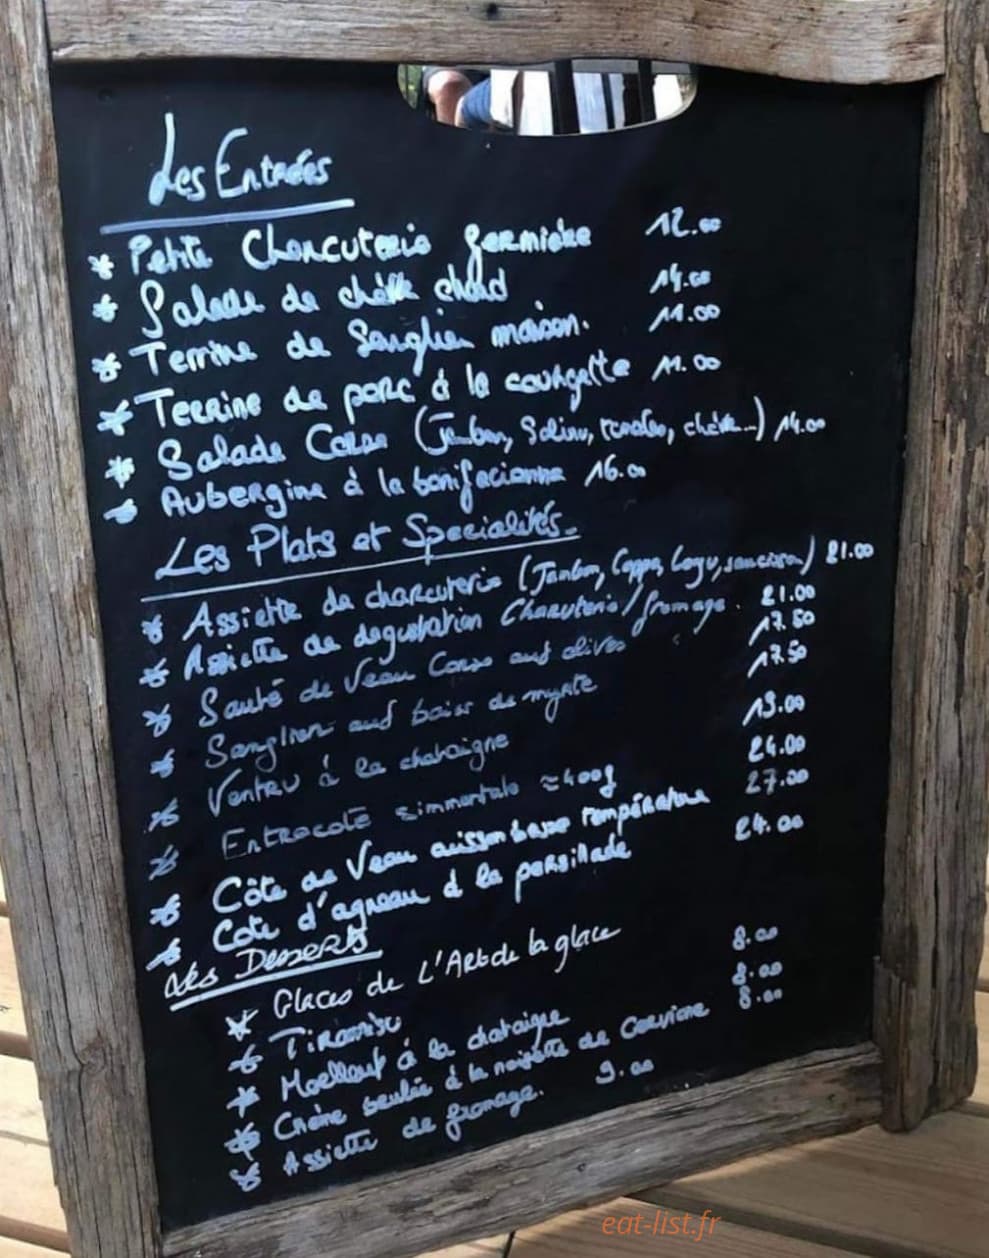 Les Entrées
* Petite Charcuterie fermière 12.00
* Salade de chèvre chaud 14.00
* Terrine de Sanglier maison. 11.00
* Terrine de porc à la courgette 11.00
* Salade Corse (Jambon, Salino, tomates, chèvre...) 14.00
* Aubergine à la bonifacienne 16.00
Les Plats et Specialités.
* Assiette de charcuterie (Jambon, Coppa, Lonzu, saucisson) 21.00
* Assiette de degustation Charcuterie/fromage. 21.00
* Sauté de Veau Corse aux olives 17.50
* Sanglier aux baies de myrte 17.50
* Ventru à la chataigne 19.00
* Entrecote simmentale ≈400g 24.00
* Côte de Veau cuisson basse température 27.00
* Cote d'agneau à la persillade 24.00
Les Desserts
* Glaces de L'Art de la glace
* Tiramisu 8.00
* Moelleux à la chataigne 8.00
* Crème brulée à la noisette de Cervione 8.00
* Assiette de fromage. 9.00
eat-list.fr